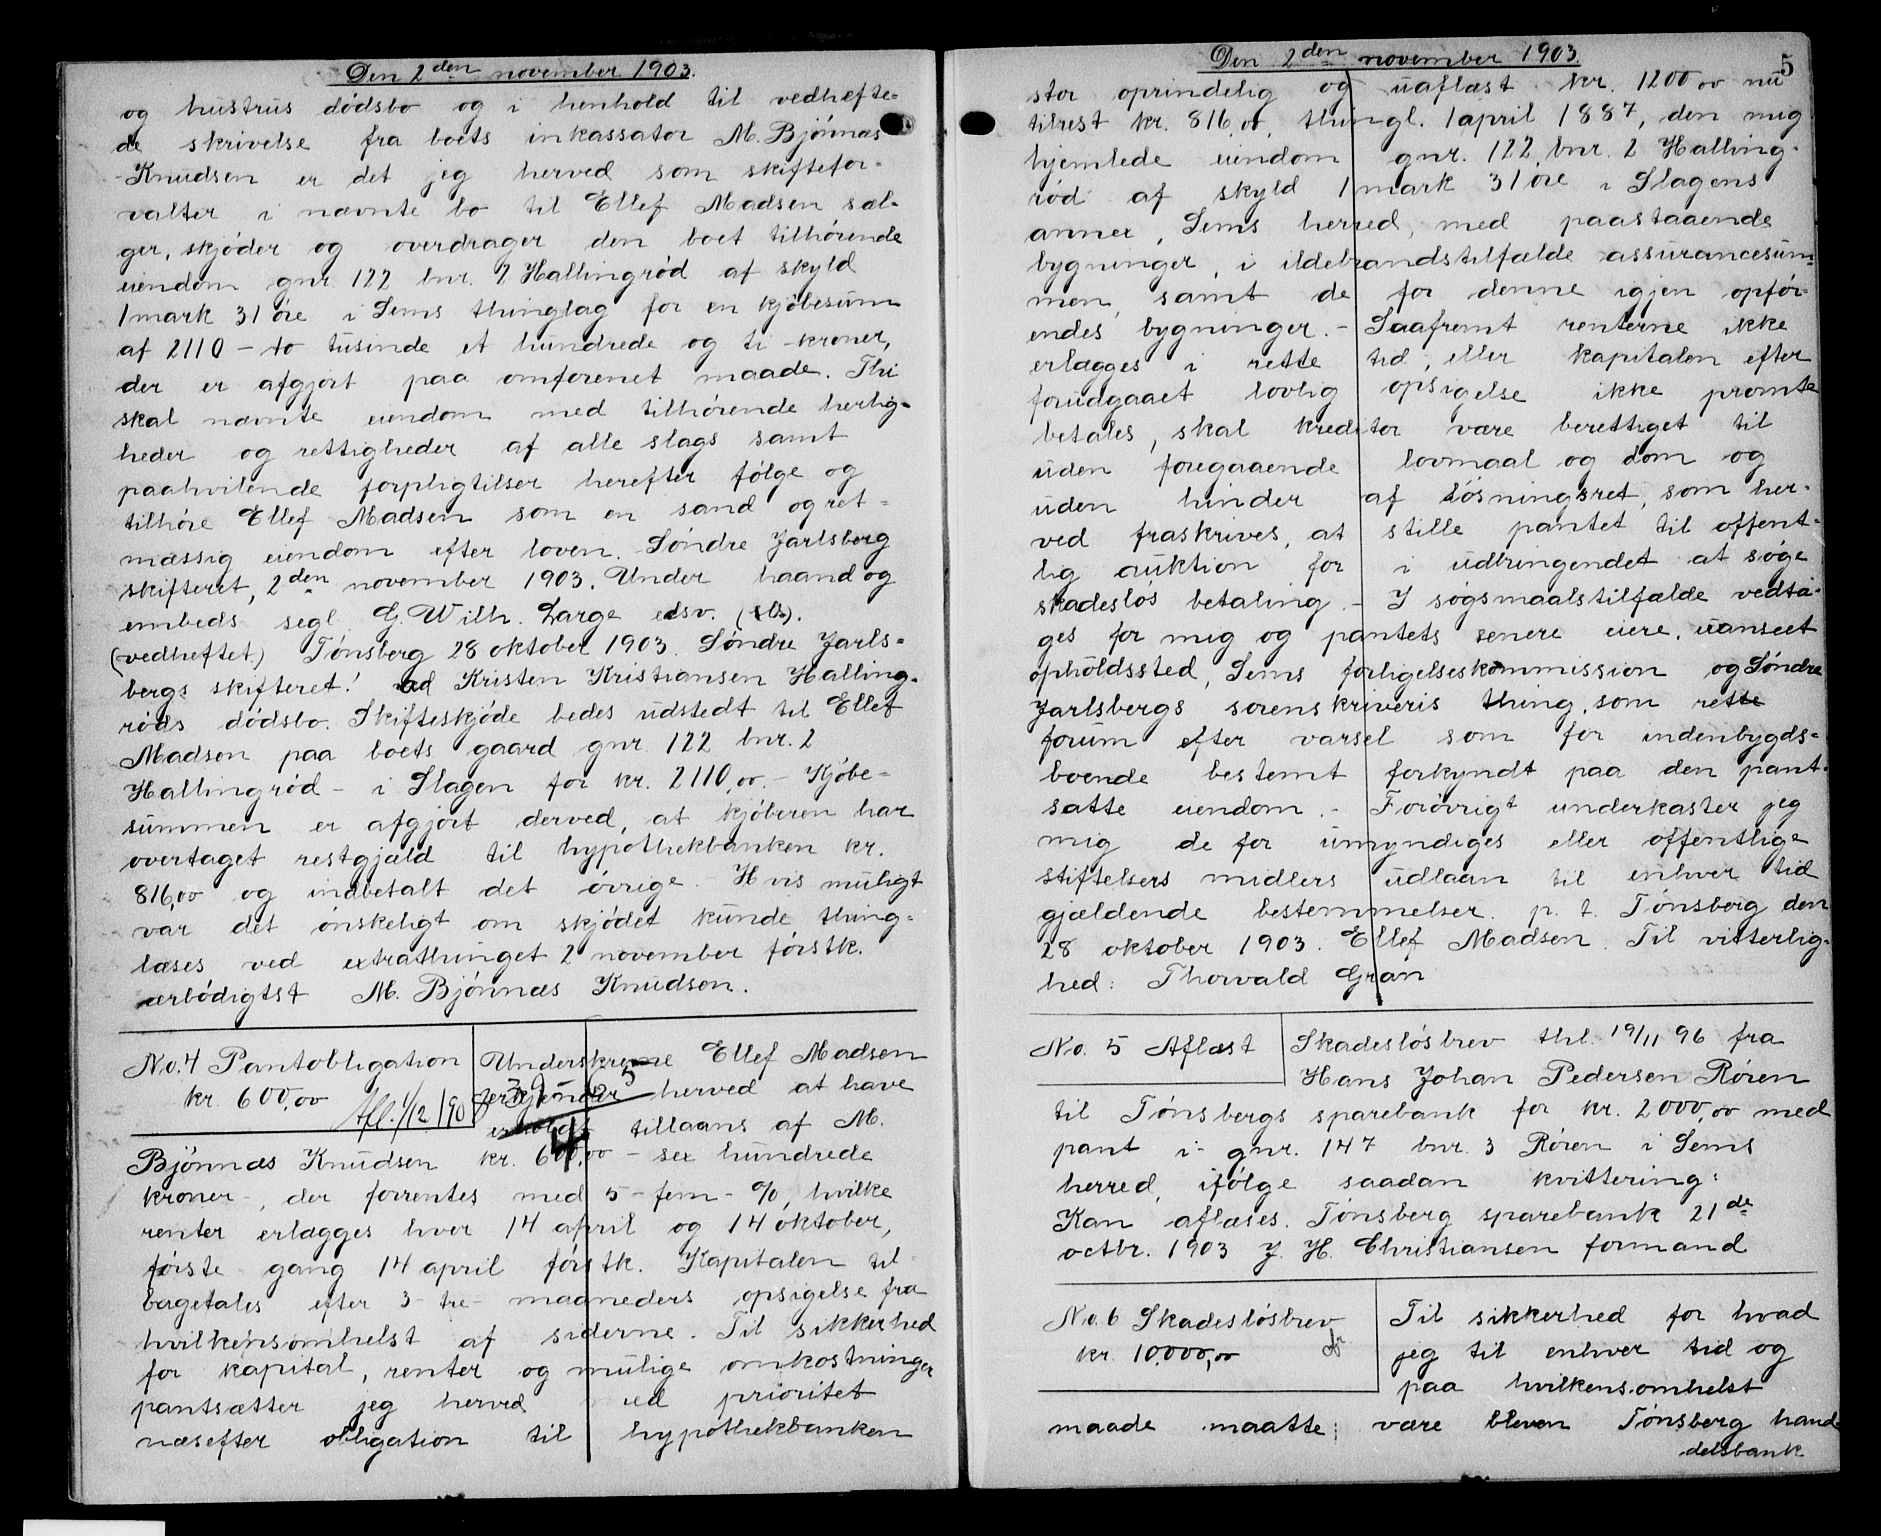 Den 2den november 1903.
og hustrus dödsbo og i henhold til vedhefte-
de skrivelse fra boets inkassator M. Bjönnæs
Knudsen er det jeg herved som skiftefor-
valter i nævnte bo til Ellef Madsen sæl-
ger, skjöder og overdrager den boet tilhörende
eiendom gnr. 122 bnr. 2 Hallingröd af skyld
1 mark 31 öre i Sems thinglag for en kjöbesum
af 2110 - to tusinde et hundrede og ti - kroner,
der er afgjort paa omforenet maade. Thi
skal nævnte eiendom med tilhörende herlig-
heder og rettigheder af alle slags samt
paahvilende forpligtilser herefter fölge og
tilhöre Ellef Madsen som en sand og ret-
mæssig eiendom efter loven. Söndre Jarlsberg
skifteret, 2den november 1903. Under haand og
embeds segl G. Wilh. Large edsv. (ls).
(vedheftet) Tönsberg 28 oktober 1903. Söndre Jarls-
bergs skifteret! ad Kristen Kristiansen Halling-
röds dödsbo. Skifteskjöde bedes udstedt til Ellef
Madsen paa boets gaard gnr. 122 bnr. 2
Hallingröd - i Slagen for kr. 2110,00. - Kjöbe-
summen er afgjort derved, at kjöberen har
overtaget restgjæld til hypothekbanken kr.
816,00 og indbetalt det övrige. Hvis muligt
var det önskeligt om skjödet kunde thing-
læses ved extrathinget 2 november förstk.
ærbödigtst M. Bjönnæs Knudsen.
No. 4 Pantobligation
kr. 600,00
Afl. 1/12 1908
Underskrevne Ellef Madsen
erkjender herved at have
erholdt tillaans af M.
Bjönnæs Knudsen kr. 600,00 - sex hundrede
kroner -, der forrentes med 5 - fem - %, hvilke
renter erlægges hver 14 april og 14 oktober,
förste gang 14 april förstk. Kapitalen til
bagetales efter 3 - tre - maaneders opsigelse fra
hvilkensomhelst af siderne. Til sikkerhed
for kapital, renter og mulige omkostninger
pantsætter jeg herved ved prioritet
næsefter obligation til hypothekbanken
Den 2den november 1903.
5
stor oprindelig og uaflæst kr. 1200,00 nu
tilrest kr. 816,00, thingl. 1 april 1887, den mig
hjemlede eiendom gnr. 122, bnr. 2 Halling-
röd af skyld 1 mark 31 öre i Slagens
anner, Sems herred, med paastaaende
bygninger, i ildebrandstilfælde assurancesum-
men, samt de for denne igjen opför-
endes bygninger. - Saafremt renterne ikke
erlægges i rette tid, eller kapitalen efter
forudgaaet lovlig opsigelse ikke promte
betales, skal kreditor være berettiget til
uden foregaaende lovmaal og dom og
uden hinder af lösningsret, som her-
ved fraskrives, at stille pantet til offent-
lig auktion for i udbringendet at söge
skadeslös betaling. - I sögsmaalstilfælde vedta-
ges for mig og pantets senere eiere, uanseet
opholdssted, Sems forligelseskommission og Söndre
Jarlsbergs sorenskriveris thing, som rette
forum efter varsel som for indenbygds-
boende bestemt forkyndt paa den pant-
satte eiendom. - Forövrigt underkaster jeg
mig de for umyndiges eller offentlige
stiftelsers midlers udlaan til enhver tid
gjældende bestemmelser. p. t. Tönsberg den
28 oktober 1903. Ellef Madsen. Til vitterlig-
hed: Thorvald Gran
No. 5 Aflæst
Skadeslösbrev thl. 19/11 96 fra
Hans Johan Pedersen Rören
til Tönsbergs sparebank for kr. 2000,00 med
pant i gnr. 147 bnr. 3 Rören i Sems
herred, ifölge saadan kvittering:
Kan aflæses. Tönsberg sparebank 21de
octbr. 1903 J. H. Christiansen formand
No. 6 Skadeslösbrev
kr. 10.000,00
Til sikkerhed for hvad
jeg til enhver tid og
paa hvilkensomhelst
maade maatte være bleven Tönsberg hand-
delsbank